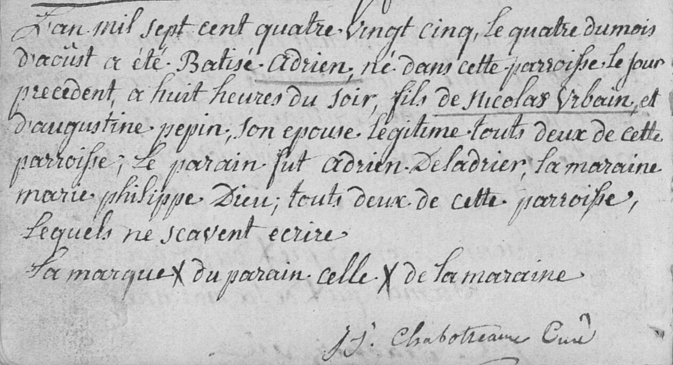 L'an mil sept cent quatre vingt cinq, le quatre du mois
d'aoüst a été Batisé adrien, né dans cette parroisse le jour
precedent, a huit heures du soir, fils de Nicolas Urbain, et
d'augustine pepin, son epouse legitime touts deux de cette
parroisse; le parain fut adrien Deladrier, la maraine
marie philippe Dieu; touts deux de cette parroisse,
lequels ne scavent ecrire
la marque X du parain celle X de la maraine
Curé